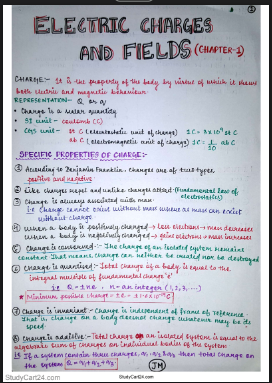 ELECTRIC CHARGES
AND FIELDS (CHAPTER-1)
CHARGE:- It is the property of the body by virtue of which it shows
both electric and magnetic behaviour.
REPRESENTATION- Q or q
• Charge is a scalar quantity
• SI unit - coulomb (C)
• CGS unit - st C (electrostatic unit of charge) 1C = 3×10⁹ st C
ab C (electromagnetic unit of charge) 1C = 1/10 ab C
SPECIFIC PROPERTIES OF CHARGE:-
① According to Benjamin Franklin - charges are of two types
positive and negative
② Like charges repel and unlike charges attract (Fundamental law of
electrostatics)
③ Charge is always associated with mass
i.e Charge cannot exist without mass where as mass can exist
without charge
④ When a body is positively charged → loses electrons → mass decreases
When a body is negatively charged → gains electrons → mass increases
⑤ Charge is conserved:- The charge of an isolated system remains
constant That means charge can neither be created nor be destroyed
⑥ Charge is quantised:- Total charge of a body is equal to the
integral multiple of fundamental charge 'e'
i.e Q = ± ne n = an integer (1, 2, 3, ...)
* Minimum possible charge = ±e = ±1.6×10⁻¹⁹ C
⑦ Charge is invariant:- Charge is independent of frame of reference
That is charge on a body doesnot change whatever may be its
speed
⑧ Charge is additive:- Total charge on an isolated system is equal to the
algebraic sum of charges on individual bodies of the system
i.e If a system contains three charges, q₁, q₂, q₃, then total charge on
the system Q = q₁+q₂+q₃
JM
StudyCart24.com
StudyCart24.com